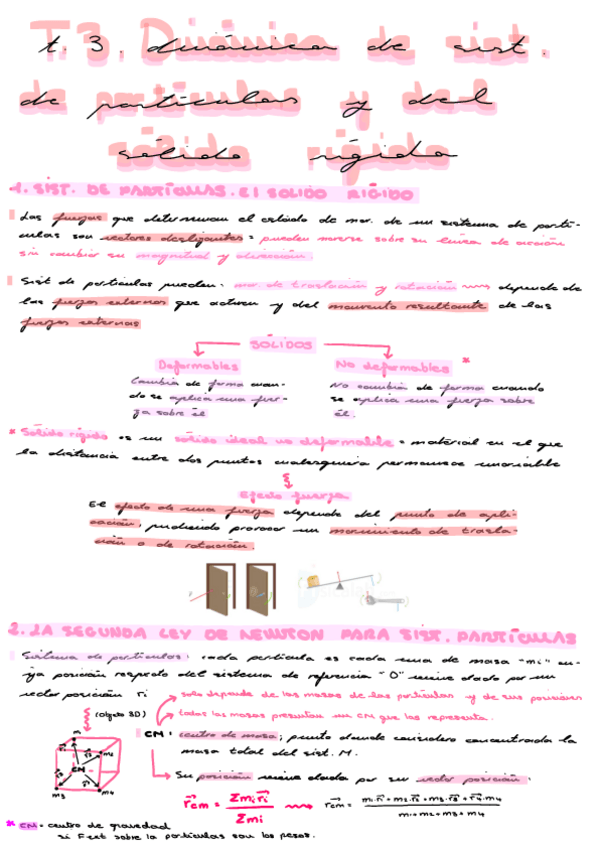 t. 3. dinámica de sist.
de partículas y del
sólido rígido
1. SIST. DE PARTÍCULAS. El SOLIDO RÍGIDO
Las fuerzas que determinan el estado de mov. de un sistema de partí-
culas son vectores deslizantes = pueden moverse sobre su línea de acción
sin cambiar su magnitud y dirección.
Sist de partículas pueden: mov. de traslación y rotación depende de
las fuerzas externas que actúen y del momento resultante de las
fuerzas externas
SÓLIDOS
Deformables No deformables *
Cambia de forma cuan- No cambia de forma cuando
do se aplica una fuer- se aplica una fuerza sobre
za sobre él él.
* Sólido rígido es un sólido ideal no deformable = material en el que
la distancia entre dos puntos cualesquiera permanece invariable
Efecto fuerza
El efecto de una fuerza depende del punto de apli-
cación, pudiendo provocar un movimiento de trasla-
ción o de rotación.
2. LA SEGUNDA LEY DE NEWTON PARA SIST. PARTÍCULAS
Sistema de partículas: cada partícula es cada una de masa "mi" cu-
ya posición respecto del sistema de referencia "O" viene dado por un
vector posición ri
solo depende de las masas de las partículas y de sus posiciones
(objeto 3D) todas las masas presentan un CM que las representa.
CM: centro de masa; punto donde considero concentrada la
masa total del sist. M.
m1 m2 CM m3 m4
Su posición viene dada por su vector posición:
rcm = Σmiri / Σmi rcm = m1·r1 + m2·r2 + m3·r3 + r4·m4 / m1+m2+m3+m4
* CM = centro de gravedad
si Fext sobre la partículas son los pesos.